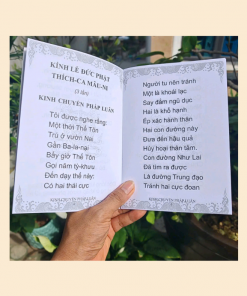 KÍNH LỄ ĐỨC PHẬT
THÍCH-CA MÂU-NI
(3 lần)
KINH CHUYỂN PHÁP LUÂN
Tôi được nghe rằng:
Một thời Thế Tôn
Trú ở vườn Nai
Gần Ba-la-nại
Bấy giờ Thế Tôn
Gọi năm tỳ-khưu
Đến dạy thế này:
Có hai thái cực
Người tu nên tránh
Một là khoái lạc
Say đắm ngũ dục
Hai là khổ hạnh
Ép xác hành thân
Hai con đường này
Đưa đến hậu quả
Hủy hoại thân tâm.
Con đường Như Lai
Đã tìm ra được
Là đường Trung đạo
Tránh hai cực đoan